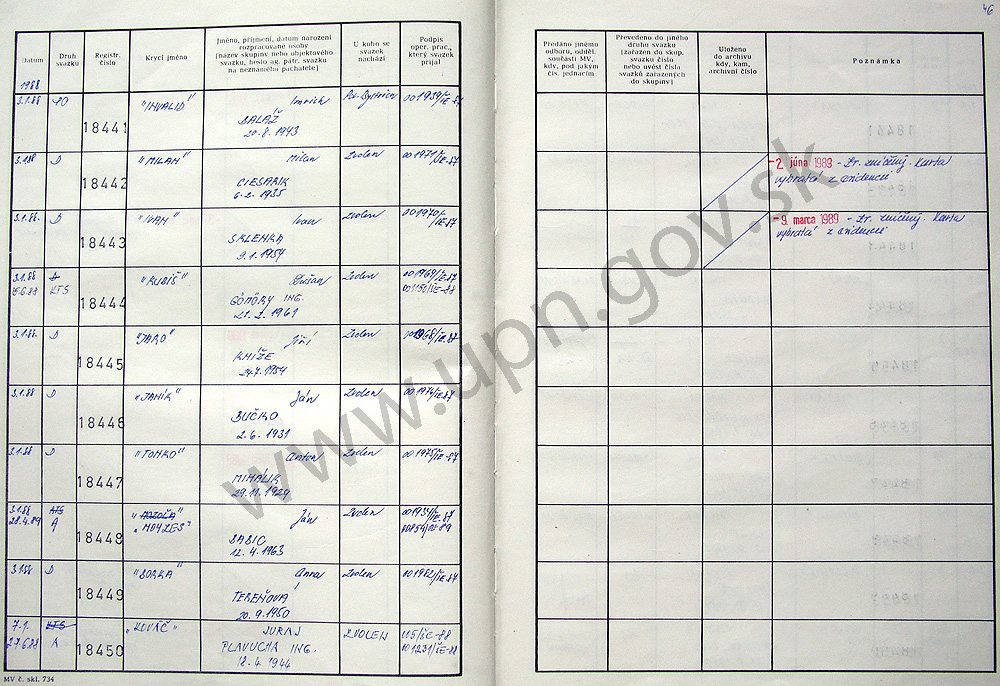 46
Datum
Druh svazku
Registr. číslo
Krycí jméno
Jméno, příjmení, datum narození rozpracované osoby (název skupiny nebo objektového svazku, heslo ag. pátr. svazku na neznámého pachatele)
U koho se svazek nachází
Podpis oper. prac., který svazek přijal
Předáno jinému odboru, odděl. součásti MV, kdy, pod jakým čís. jednacím
Převedeno do jiného druhu svazku (zařazen do skup. svazku číslo nebo uvést čísla svazků zařazených do skupiny)
Uloženo do archivu kdy, kam, archivní číslo
Poznámka
1988
3.1.88 PO 18441 "INVALID" Imrich
BALÁŽ
20.8.1943
3.1.88 D 18442 "MILAN" Milan Zvolen 001971/ŠE-87
CIESARIK
6.2.1935
- 2. júna 1989 - Zv. zničený. Karta
vybratá z evidencie
3.1.88. D 18443 "IVAN" Ivan Zvolen 001970/ŠE-87
SKLENKA
9.1.1954
- 9. marca 1989 - Zv. zničený. Karta
vybratá z evidencie
3.1.88 18444 "KUBIŠ" Dušan Zvolen 001969/ŠE-87
KTS
GÖMÖRY ING.
21.2.1961
3.1.88. D 18445 "JARO" Jiří Zvolen 001968/ŠE-87
KNÍŽE
24.7.1954
3.1.88 D 18446 "JANÍK" Ján Zvolen 001974/ŠE-87
BUČKO
2.6.1931
3.1.88 D 18447 "TOMKO" Anton Zvolen 001975/ŠE-87
MIHALIK
29.11.1929
3.1.88 KTS 18448 Ján Zvolen
28.4.89 A "MOYZES"
BABIC
12.4.1963
3.1.88 D 18449 "BORKA" Anna Zvolen 001982/ŠE-87
TEREŇOVÁ
20.9.1950
7.1. KTS 18450 "KOVÁČ" JURAJ ZVOLEN
27.6.88 A PLAVUCHA ING. 001231/ŠE-88
12.4.1944
MV č. skl. 734
www.upn.gov.sk